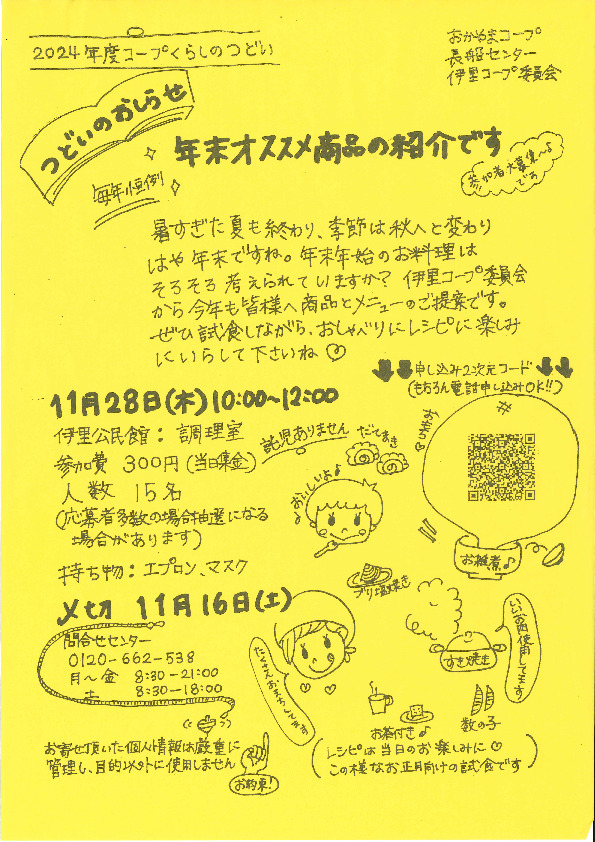 2024年度コープくらしのつどい
おかやまコープ
長船センター
伊里コープ委員会
つどいのおしらせ
年末オススメ商品の紹介です
毎年恒例
参加者大募集〜♪
です
暑すぎた夏も終わり、季節は秋へと変わり
はや年末ですね。年末年始のお料理は
そろそろ考えられていますか？ 伊里コープ委員会
から今年も皆様へ商品とメニューのご提案です。
ぜひ試食しながら、おしゃべりにレシピに楽しみ
にいらして下さいね♡
申し込み2次元コード
(もちろん電話申し込みOK!!)
11月28日(木)10:00〜12:00
伊里公民館：調理室
託児ありません
だてまき
参加費 300円(当日集金)
人数 15名
おいしいよ♪
(応募者多数の場合抽選になる
場合があります)
お雑煮♪
持ち物：エプロン、マスク
ブリ塩焼き
〆切 11月16日(土)
いいお肉使用してます
問合せセンター
0120-662-538
月〜金 8:30-21:00
土 8:30-18:00
すき焼き
たくさんおまちしてます
数の子
お茶付き♪
お寄せ頂いた個人情報は厳重に
管理し、目的以外に使用しません
お約束!
(レシピは当日のお楽しみに♡
この様なお正月向けの試食です)